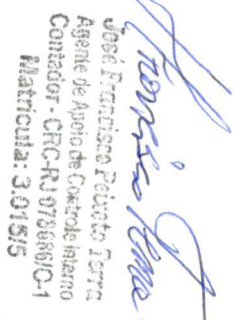 José Francisco Peixoto Terra
Agente de Apoio de Controle Interno
Contador - CRC-RJ 078686/O-1
Matrícula: 3.015/5